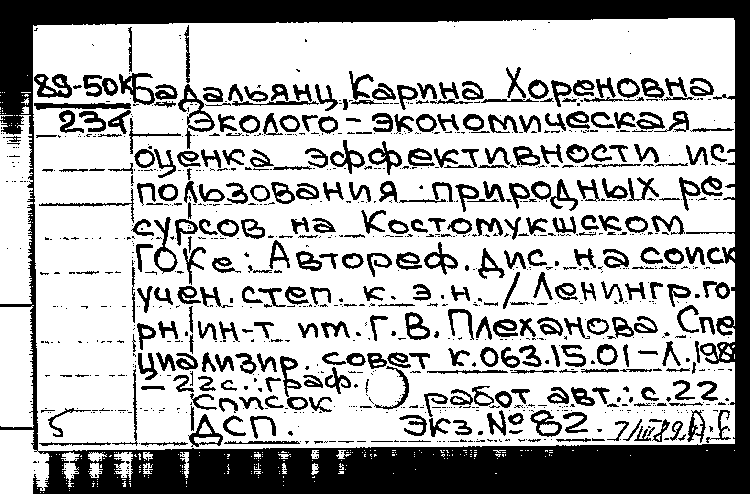 89-50к Бадальянц, Карина Хореновна.
234 Эколого-экономическая
оценка эффективности ис-
пользования природных ре-
сурсов на Костомукшском
ГОКе: Автореф. дис. на соиск
учен. степ. к. э. н. / Ленингр. го-
рн. ин-т им. Г. В. Плеханова. Спе
циализир. совет К.063.15.01 - Л., 1988
- 22 с.: граф.
Список работ авт.: с. 22.
5 ДСП. Экз. № 82. 7/III 89.